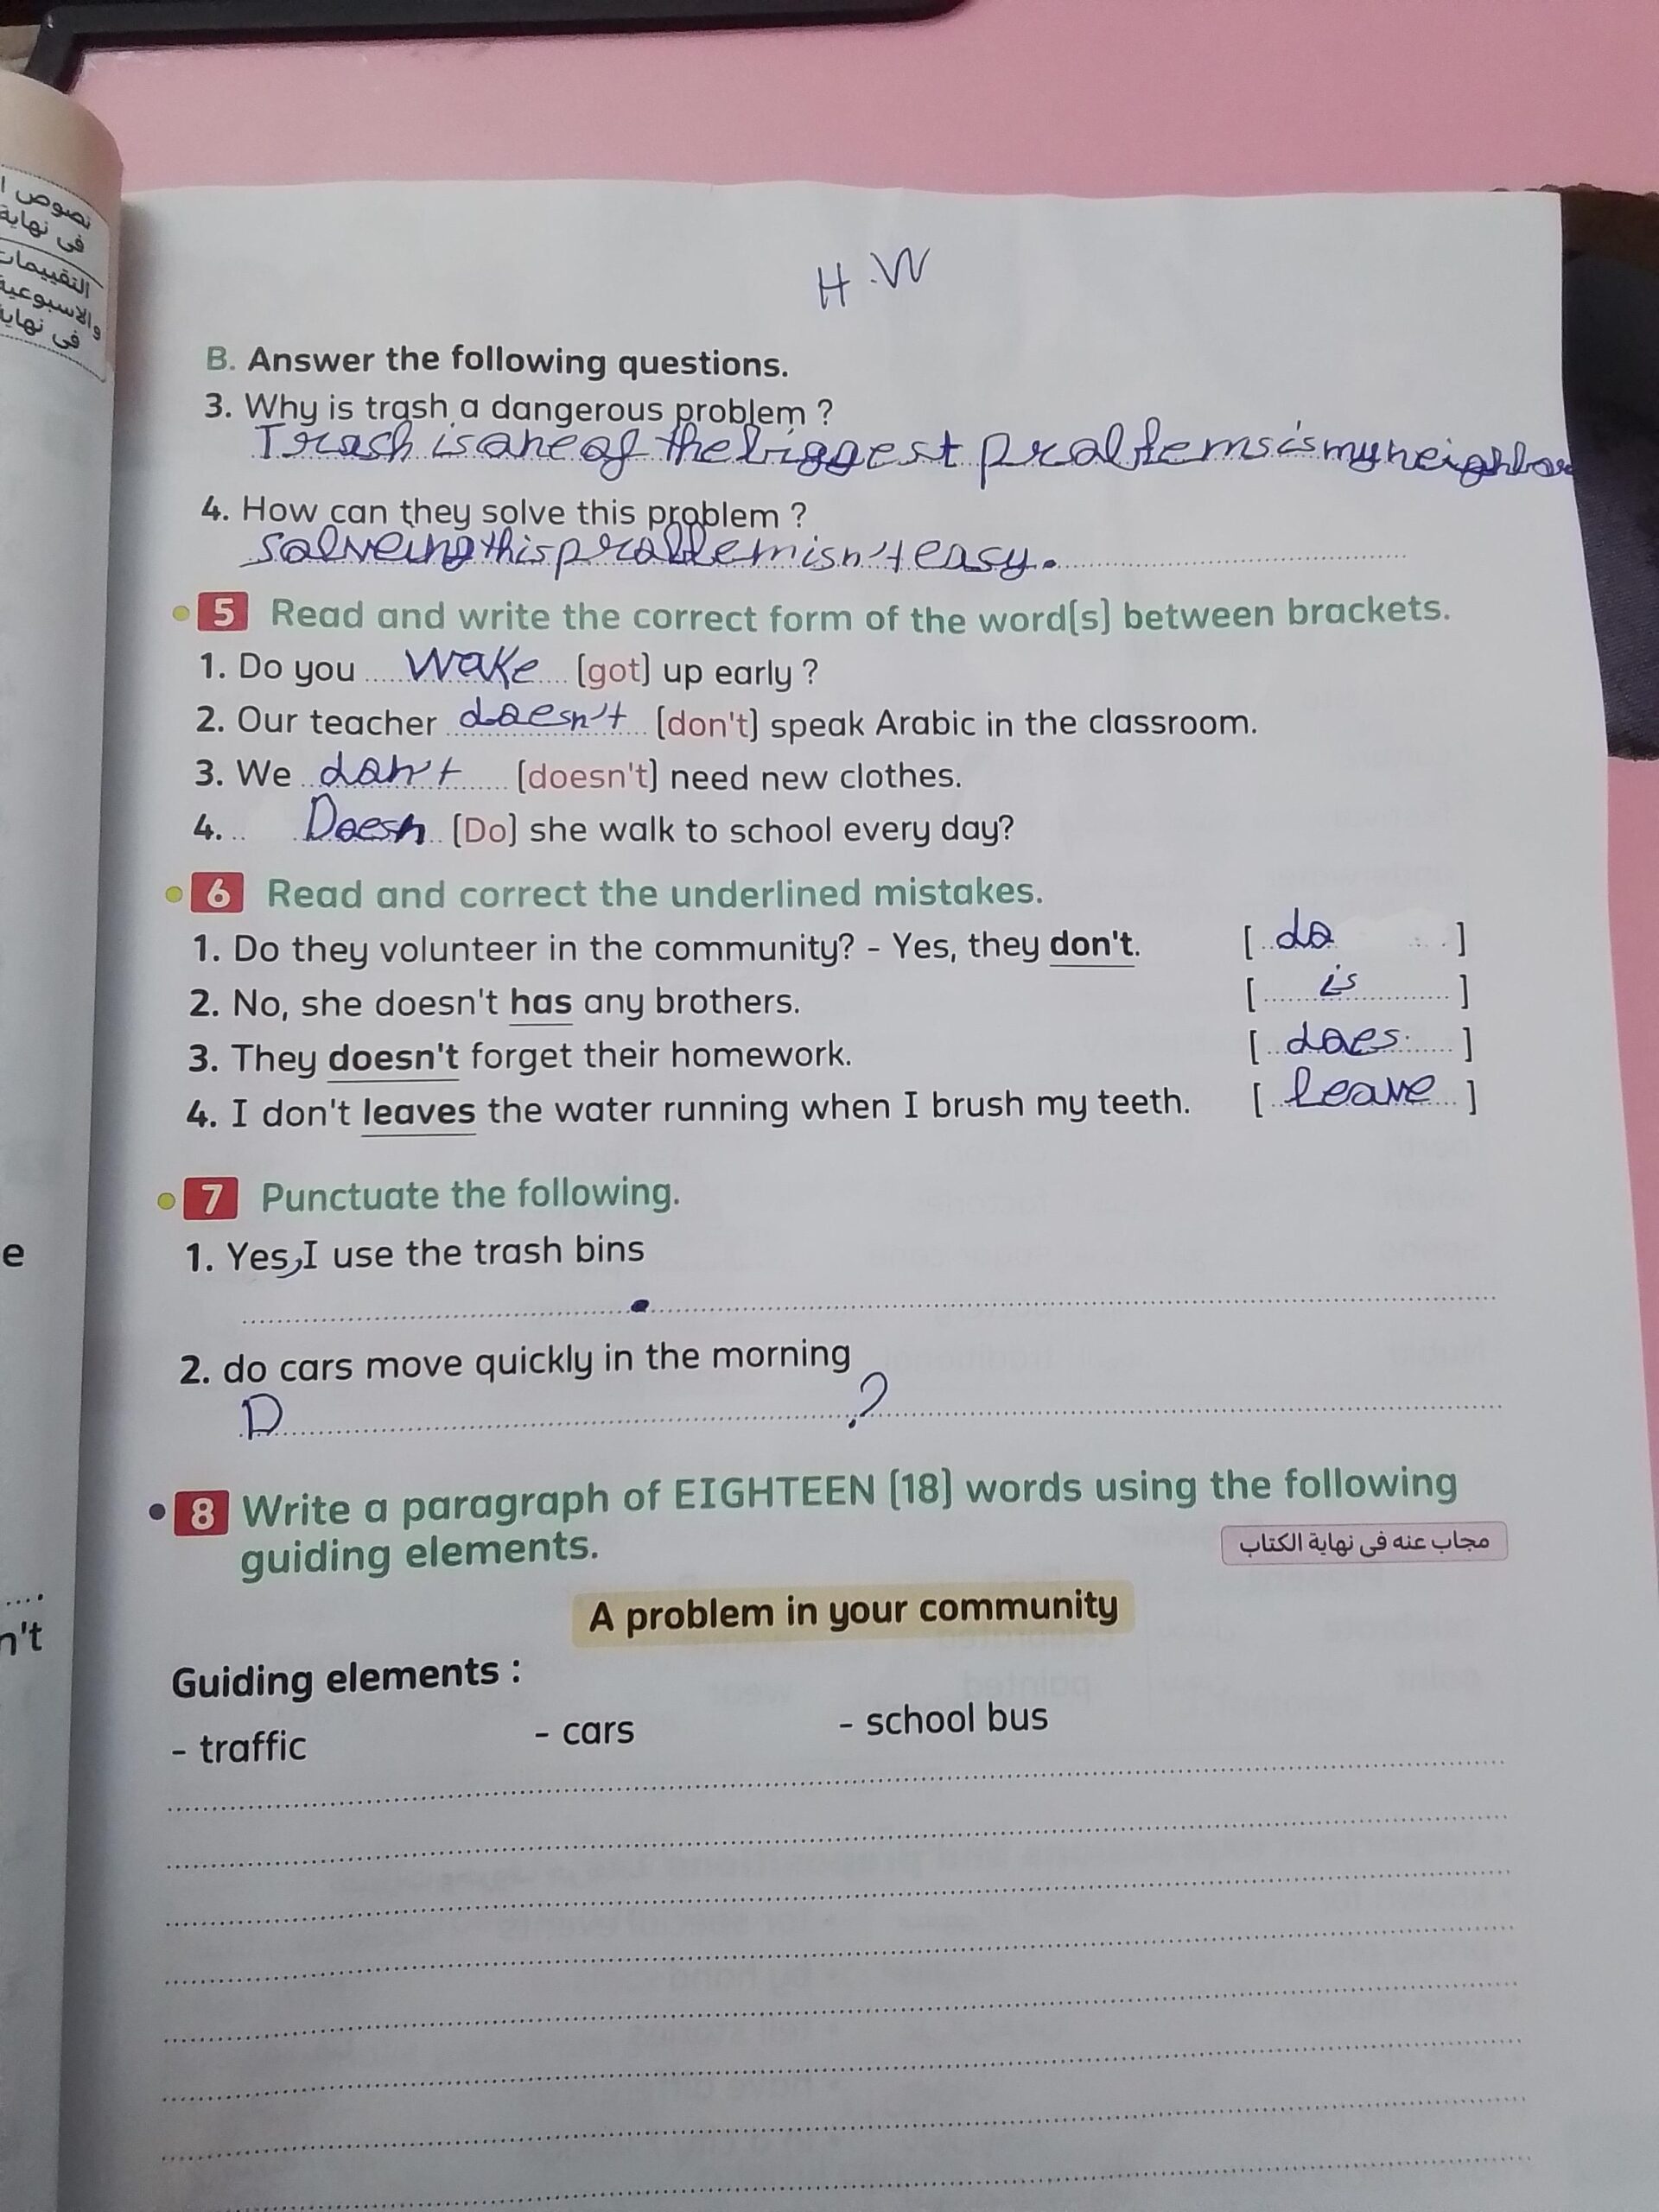 نصوص ا
فى نهاية
التقييمات
والاسبوعية
فى نهاية
H.W
B. Answer the following questions.
3. Why is trash a dangerous problem ?
Trash is one of the biggest problems is my neighbor
4. How can they solve this problem ?
solveing this problem isn't easy.
5 Read and write the correct form of the word(s) between brackets.
1. Do you wake (got) up early ?
2. Our teacher doesn't (don't) speak Arabic in the classroom.
3. We don't (doesn't) need new clothes.
4. Doesn (Do) she walk to school every day?
6 Read and correct the underlined mistakes.
1. Do they volunteer in the community? - Yes, they don't. [ do ]
2. No, she doesn't has any brothers. [ is ]
3. They doesn't forget their homework. [ does ]
4. I don't leaves the water running when I brush my teeth. [ leave ]
7 Punctuate the following.
1. Yes, I use the trash bins
.
2. do cars move quickly in the morning
D ?
8 Write a paragraph of EIGHTEEN (18) words using the following
guiding elements.
مجاب عنه فى نهاية الكتاب
A problem in your community
Guiding elements :
- traffic - cars - school bus
e
n't